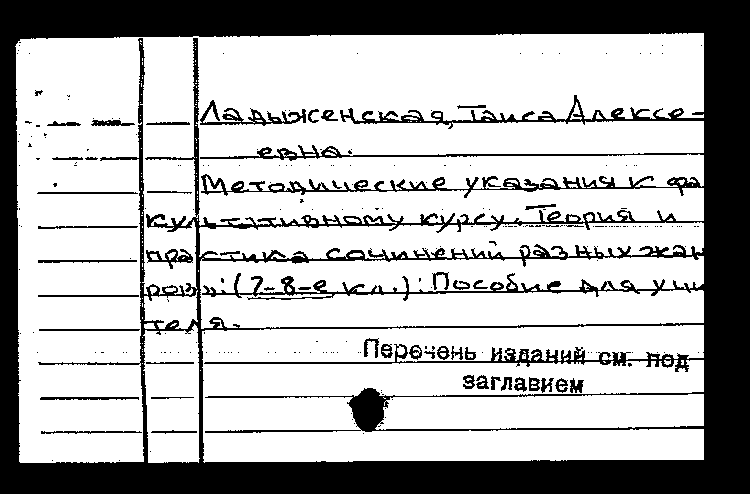 Ладыженская, Таиса Алексе-
евна.
Методические указания к фа
культативному курсу. Теория и
практика сочинений разных жан
ров»: (7-8-е кл.): Пособие для учи
теля.
Перечень изданий см. под
заглавием